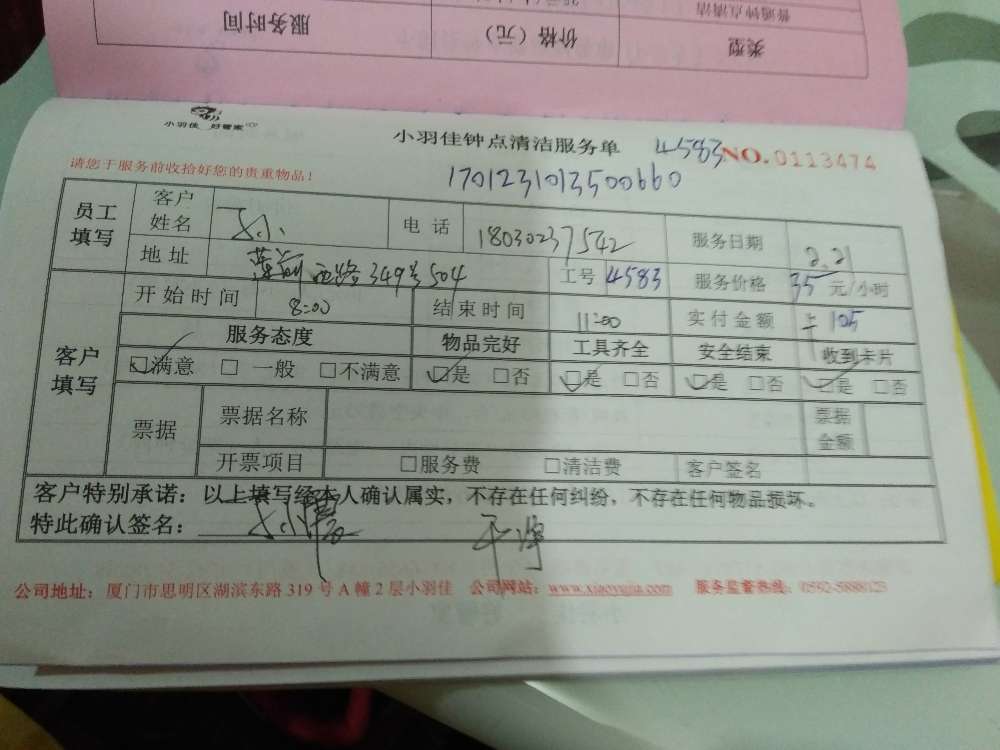 服务时间 价格（元） 类型
普通钟点清洁
小羽佳 好管家
小羽佳钟点清洁服务单 4583 NO.0113474
请您于服务前收拾好您的贵重物品！ 1701231013500660
员工填写 客户姓名 电话 18030237542 服务日期 2.21
地址 莲前西路349号504 工号 4583 服务价格 35 元/小时
客户填写 开始时间 8:00 结束时间 11:00 实付金额 105
服务态度 物品完好 工具齐全 安全结束 收到卡片
☑满意 □一般 □不满意 ☑是 □否 ☑是 □否 ☑是 □否 ☑是 □否
票据 票据名称 票据金额
开票项目 □服务费 □清洁费 客户签名
客户特别承诺：以上填写经本人确认属实，不存在任何纠纷，不存在任何物品损坏。
特此确认签名： 干净
公司地址：厦门市思明区湖滨东路319号A幢2层小羽佳 公司网站：www.xiaoyujia.com 服务监督热线：0592-5888123